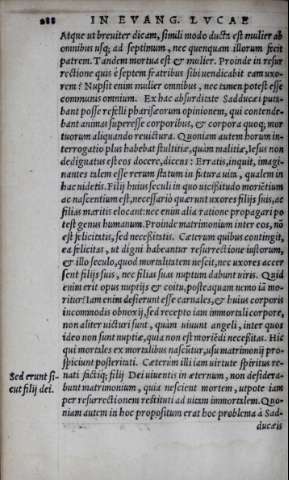 288 IN EVANG. LVCAE
Atque ut breuiter dicam, simili modo ducta est mulier ab
omnibus usq; ad septimum, nec quenquam illorum fecit
patrem. Tandem mortua est & mulier. Proinde in resur
rectione quis è septem fratribus sibi uendicabit eam uxo-
rem? Nupsit enim mulier omnibus, nec tamen potest esse
communis omnium. Ex hac absurditate Sadducæi puta-
bant posse refelli pharisæorum opinionem, qui contende-
bant animas superesse corporibus, & corpora quoq; mor
tuorum aliquando reuictura. Quoniam autem horum in-
terrogatio plus habebat stultitiæ, quàm malitiæ, Iesus non
dedignatus est eos docere, dicens: Erratis, inquit, imagi-
nantes talem esse rerum statum in futura uita, qualem in
hac uidetis. Filij huius seculi in quo uicissitudo moriētium
ac nascentium est, necessariò quærunt uxores filijs suis, ac
filias maritis elocant: nec enim alia ratione propagari po
test genus humanum. Proinde matrimonium inter eos, nō
est felicitatis, sed necessitatis. Cæterum quibus contingit,
ea felicitas, ut digni habeantur resurrectione iustorum,
& illo seculo, quod mortalitatem nescit, nec uxores accer
sent filijs suis, nec filias suas nuptum dabunt uiris. Quid
enim erit opus nuptijs & coitu, posteaquam nemo iā mo-
ritur? Iam enim desierunt esse carnales, & huius corporis
incommodis obnoxij, sed recepto iam immortali corpore,
non aliter uicturi sunt, quàm uiuunt angeli, inter quos
ideo non sunt nuptiæ, quia non est moriēdi necessitas. Hic
qui mortales ex mortalibus nascūtur, usu matrimonij pro-
spiciunt posteritati. Cæterùm illi iam uirtute spiritus re-
Sed erunt si- nati factiq; filij Dei uiuentis in æternum, non desidera-
cut filij dei. bunt matrimonium, quia nescient mortem, utpote iam
per resurrectionem restituti ad uitam immortalem. Quo-
niam autem in hoc propositum erat hoc problema à Sad-
ducæis